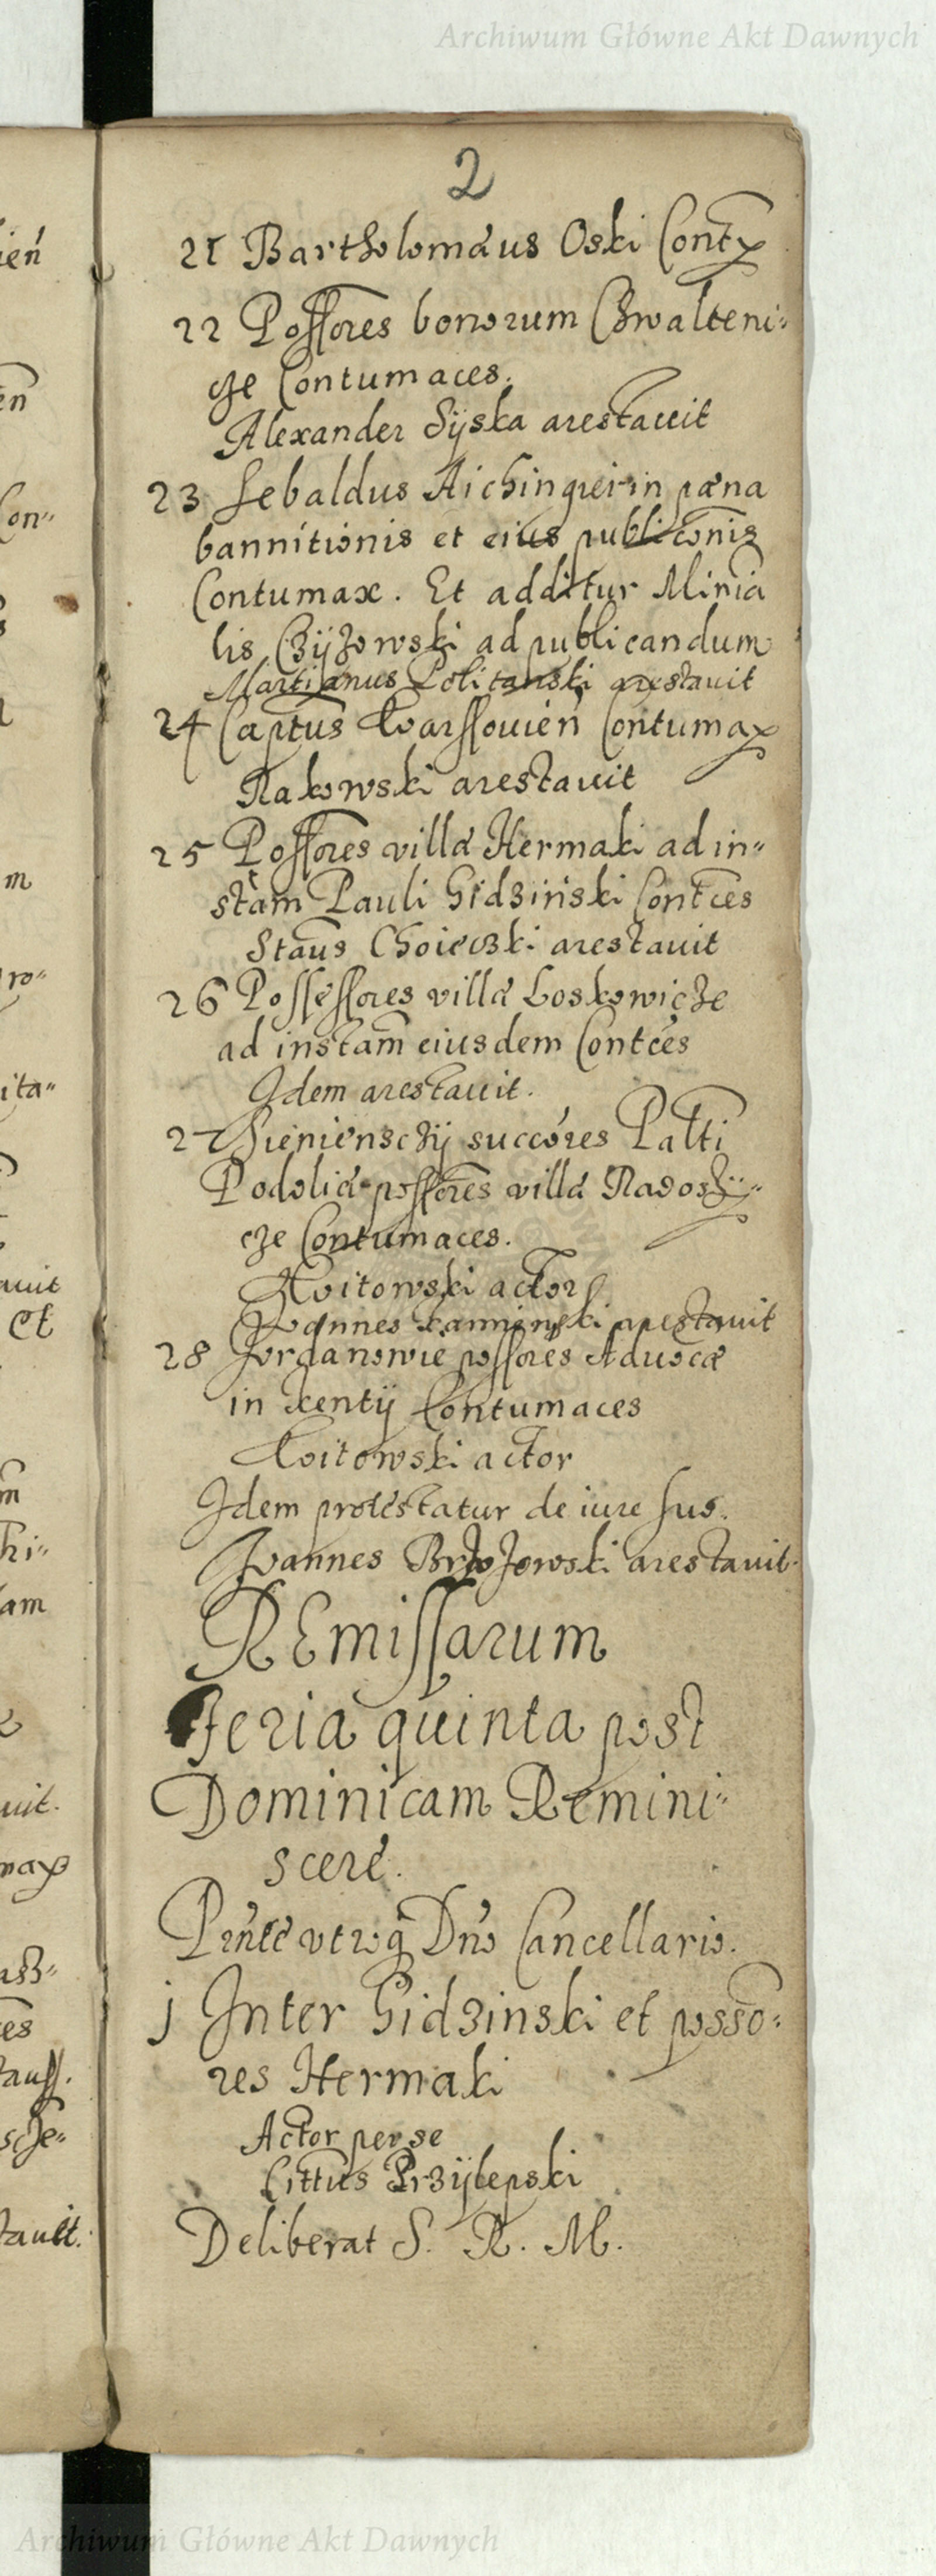 Archiwum Główne Akt Dawnych
2
21 Bartholomæus Oski Contx
22 Possores bonorum Chwalteni:
cze Contumaces.
Alexander Sÿska arestauit
23 Sebaldus Aichinger in pæna
bannitionis et eius publiconis
Contumax. Et additur Minia
lis Czÿżowski ad publicandum
Martianus Politanski arestauit
24 Captus Warssouien Contumax
Rakowski arestauit
25 Possores villæ Hermaki ad in"
stam Pauli Gidziński Contces
Staus Choieczki arestauit
26 Possessores villæ Loskowicze
ad instam eiusdem Contces
Idem arestauit.
27 Sienienscÿ succores Palti
Podoliæ possores villæ Radoszÿ"
cze Contumaces.
Woitowski actor
Joannes Kamienski arestauit
28 Jordanowie possores Aduocæ
in Kentÿ Contumaces
Woitowski actor
Idem protestatur de iure suo.
Joannes Brzozowski arestauit.
REmissarum
Feria quinta post
Dominicam Remini:
scere.
Pnte vtroq Dno Cancellario.
j Inter Gidzinski et posso:
res Hermaki
Actor per se
Cittus Przÿlepski
Deliberat S. R. M.
ien
en
Con"
m
ro"
ita"
auit
Et
m
hi"
am
uit.
max
es
tauit.
Archiwum Główne Akt Dawnych